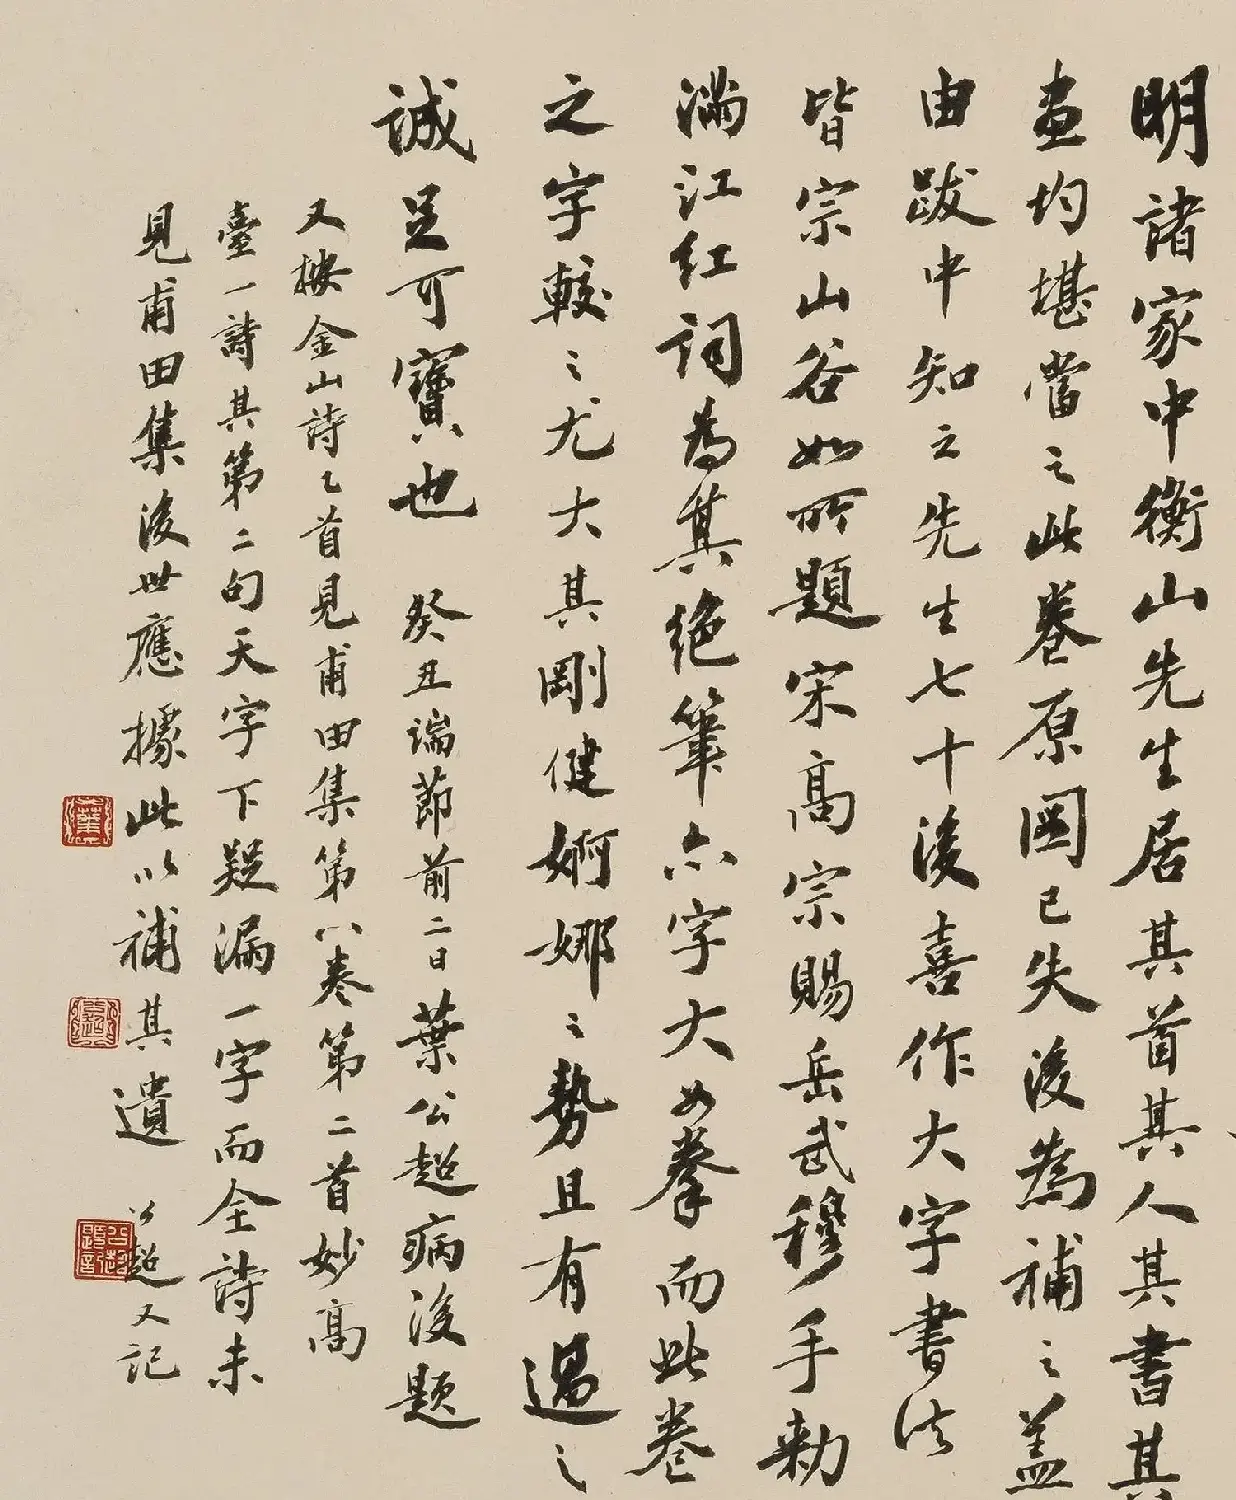 明諸家中衡山先生居其首其人其書其
畫均堪當之此卷原圖已失後為補之蓋
由跋中知之先生七十後喜作大字書法
皆宗山谷如所題宋高宗賜岳武穆手勅
滿江紅詞為其絕筆亦字大如拳而此卷
之字較之尤大其剛健婀娜之勢且有過之
誠足可寶也 癸丑端節前二日葉公超病後題
又按金山詩乙首見甫田集第八卷第二首妙高
臺一詩其第二句天字下疑漏一字而全詩未
見甫田集後世應據此以補其遺 公超又記